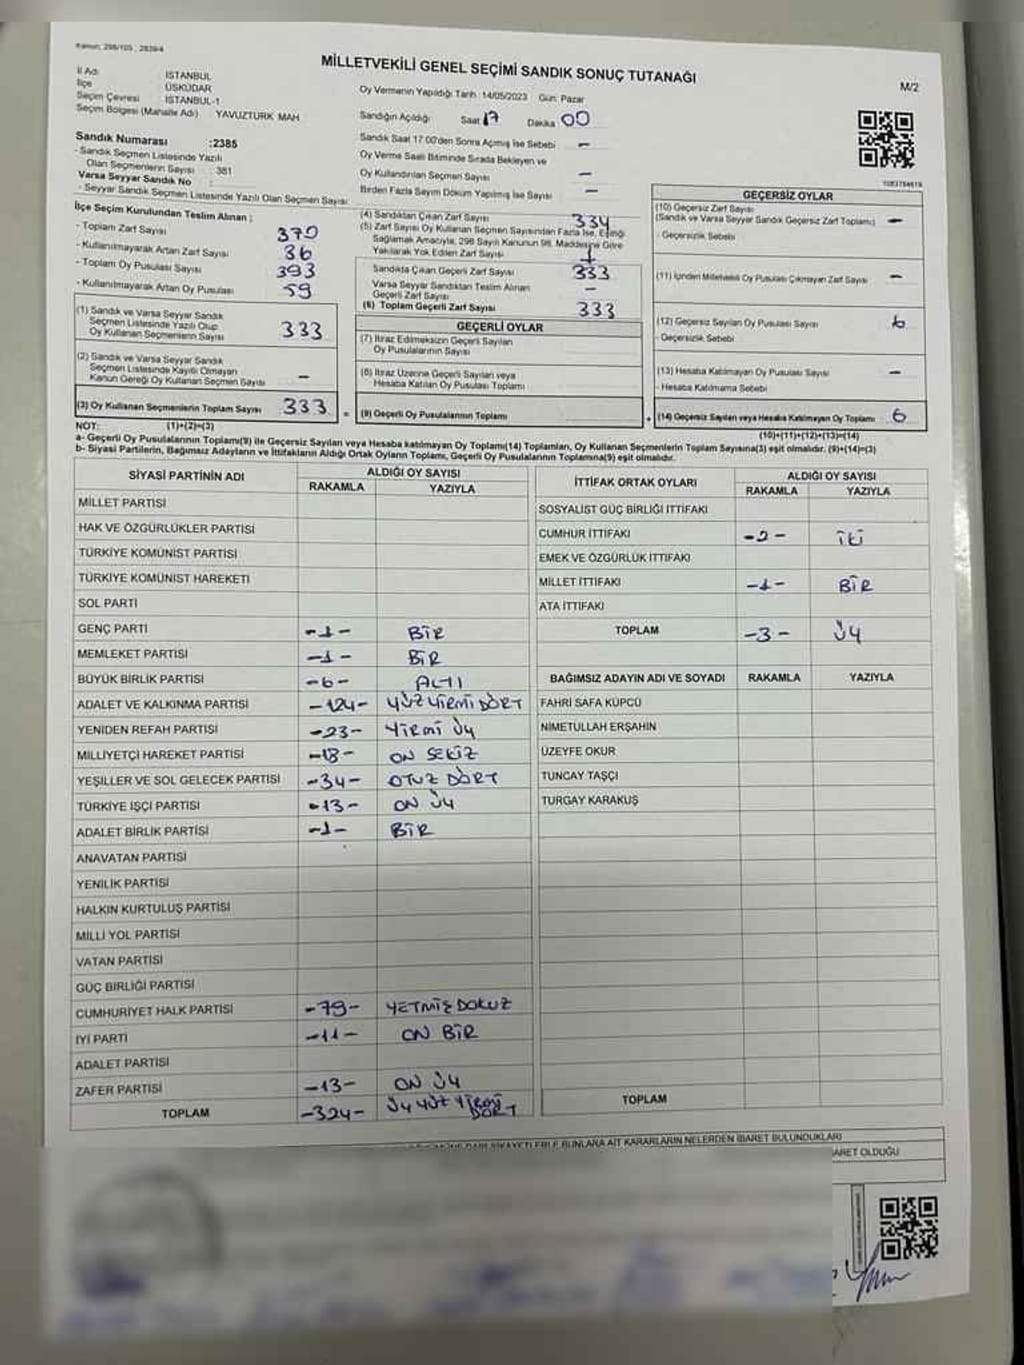 Kanun: 298/105 , 2839/4
MİLLETVEKİLİ GENEL SEÇİMİ SANDIK SONUÇ TUTANAĞI
M/2
İl Adı : İSTANBUL
İlçe : ÜSKÜDAR
Seçim Çevresi : İSTANBUL-1
Seçim Bölgesi (Mahalle Adı) : YAVUZTÜRK MAH
Sandık Numarası :2385
- Sandık Seçmen Listesinde Yazılı
Olan Seçmenlerin Sayısı : 381
Varsa Seyyar Sandık No :
- Seyyar Sandık Seçmen Listesinde Yazılı Olan Seçmen Sayısı:
Oy Vermenin Yapıldığı Tarih :14/05/2023 Gün: Pazar
Sandığın Açıldığı Saat 17 Dakika 00
Sandık Saat 17:00'den Sonra Açılmış İse Sebebi -
Oy Verme Saati Bitiminde Sırada Bekleyen ve
Oy Kullandırılan Seçmen Sayısı -
Birden Fazla Sayım Döküm Yapılmış İse Sayısı -
1083784619
İlçe Seçim Kurulundan Teslim Alınan :
- Toplam Zarf Sayısı 370
- Kullanılmayarak Artan Zarf Sayısı 36
- Toplam Oy Pusulası Sayısı 393
- Kullanılmayarak Artan Oy Pusulası 59
(1) Sandık ve Varsa Seyyar Sandık
Seçmen Listesinde Yazılı Olup
Oy Kullanan Seçmenlerin Sayısı 333
(2) Sandık ve Varsa Seyyar Sandık
Seçmen Listesinde Kayıtlı Olmayan
Kanun Gereği Oy Kullanan Seçmen Sayısı -
(3) Oy Kullanan Seçmenlerin Toplam Sayısı 333
(4) Sandıktan Çıkan Zarf Sayısı 334
(5) Zarf Sayısı Oy Kullanan Seçmen Sayısından Fazla İse, Eşitliği
Sağlamak Amacıyla, 298 Sayılı Kanunun 98. Maddesine Göre
Yakılarak Yok Edilen Zarf Sayısı 1
Sandıkta Çıkan Geçerli Zarf Sayısı 333
Varsa Seyyar Sandıktan Teslim Alınan
Geçerli Zarf Sayısı -
(6) Toplam Geçerli Zarf Sayısı 333
GEÇERLİ OYLAR
(7) İtiraz Edilmeksizin Geçerli Sayılan
Oy Pusulalarının Sayısı
(8) İtiraz Üzerine Geçerli Sayılan veya
Hesaba Katılan Oy Pusulası Toplamı
= (9) Geçerli Oy Pusulalarının Toplamı
GEÇERSİZ OYLAR
(10) Geçersiz Zarf Sayısı
(Sandık ve Varsa Seyyar Sandık Geçersiz Zarf Toplamı) -
- Geçersizlik Sebebi
(11) İçinden Milletvekili Oy Pusulası Çıkmayan Zarf Sayısı -
(12) Geçersiz Sayılan Oy Pusulası Sayısı 6
- Geçersizlik Sebebi
(13) Hesaba Katılmayan Oy Pusulası Sayısı -
- Hesaba Katılmama Sebebi
+ (14) Geçersiz Sayılan veya Hesaba Katılmayan Oy Toplamı 6
NOT: (1)+(2)=(3)
(10)+(11)+(12)+(13)=(14)
a- Geçerli Oy Pusulalarının Toplamı(9) ile Geçersiz Sayılan veya Hesaba katılmayan Oy Toplamı(14) Toplamları, Oy Kullanan Seçmenlerin Toplam Sayısına(3) eşit olmalıdır. (9)+(14)=(3)
b- Siyasi Partilerin, Bağımsız Adayların ve İttifakların Aldığı Ortak Oyların Toplamı, Geçerli Oy Pusulalarının Toplamına(9) eşit olmalıdır.
SİYASİ PARTİNİN ADI ALDIĞI OY SAYISI
RAKAMLA YAZIYLA
MİLLET PARTİSİ
HAK VE ÖZGÜRLÜKLER PARTİSİ
TÜRKİYE KOMÜNİST PARTİSİ
TÜRKİYE KOMÜNİST HAREKETİ
SOL PARTİ
GENÇ PARTİ -1- BİR
MEMLEKET PARTİSİ -1- BİR
BÜYÜK BİRLİK PARTİSİ -6- ALTI
ADALET VE KALKINMA PARTİSİ -124- YÜZ YİRMİ DÖRT
YENİDEN REFAH PARTİSİ -23- YİRMİ ÜÇ
MİLLİYETÇİ HAREKET PARTİSİ -18- ON SEKİZ
YEŞİLLER VE SOL GELECEK PARTİSİ -34- OTUZ DÖRT
TÜRKİYE İŞÇİ PARTİSİ -13- ON ÜÇ
ADALET BİRLİK PARTİSİ -1- BİR
ANAVATAN PARTİSİ
YENİLİK PARTİSİ
HALKIN KURTULUŞ PARTİSİ
MİLLİ YOL PARTİSİ
VATAN PARTİSİ
GÜÇ BİRLİĞİ PARTİSİ
CUMHURİYET HALK PARTİSİ -79- YETMİŞ DOKUZ
İYİ PARTİ -11- ON BİR
ADALET PARTİSİ
ZAFER PARTİSİ -13- ON ÜÇ
TOPLAM -324- ÜÇ YÜZ YİRMİ DÖRT
İTTİFAK ORTAK OYLARI ALDIĞI OY SAYISI
RAKAMLA YAZIYLA
SOSYALİST GÜÇ BİRLİĞİ İTTİFAKI
CUMHUR İTTİFAKI -2- İKİ
EMEK VE ÖZGÜRLÜK İTTİFAKI
MİLLET İTTİFAKI -1- BİR
ATA İTTİFAKI
TOPLAM -3- ÜÇ
BAĞIMSIZ ADAYIN ADI VE SOYADI RAKAMLA YAZIYLA
FAHRİ SAFA KÜPCÜ
NİMETULLAH ERŞAHİN
ÜZEYFE OKUR
TUNCAY TAŞÇI
TURGAY KARAKUŞ
TOPLAM
ŞİKAYETLERLE BUNLARA AİT KARARLARIN NELERDEN İBARET BULUNDUKLARI
OLDUĞU